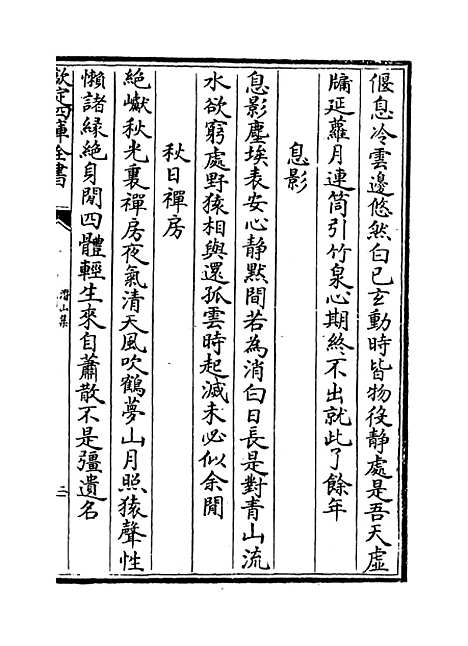 偃息冷雲邊悠然白已玄動時皆物役静處是吾天虚
牗延蘿月連筒引竹泉心期終不出就此了餘年
息影
息影塵埃表安心静黙間若為消白日長是對青山流
水欲窮處野猿相與還孤雲時起滅未必似余閒
秋日禪房
絶巘秋光裏禪房夜氣清天風吹鶴夢山月照猿聲性
懶諸縁絶身閒四體輕生來自蕭散不是彊遺名
欽定四庫全書
潛山集
三